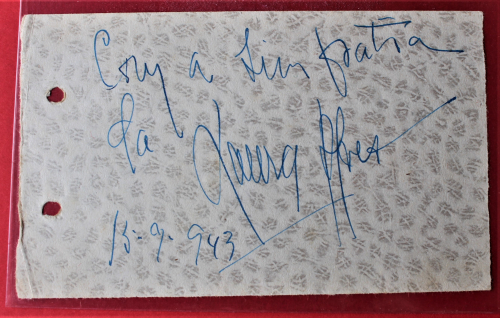 Com a simpatia
da Laura Alves
15-9-943